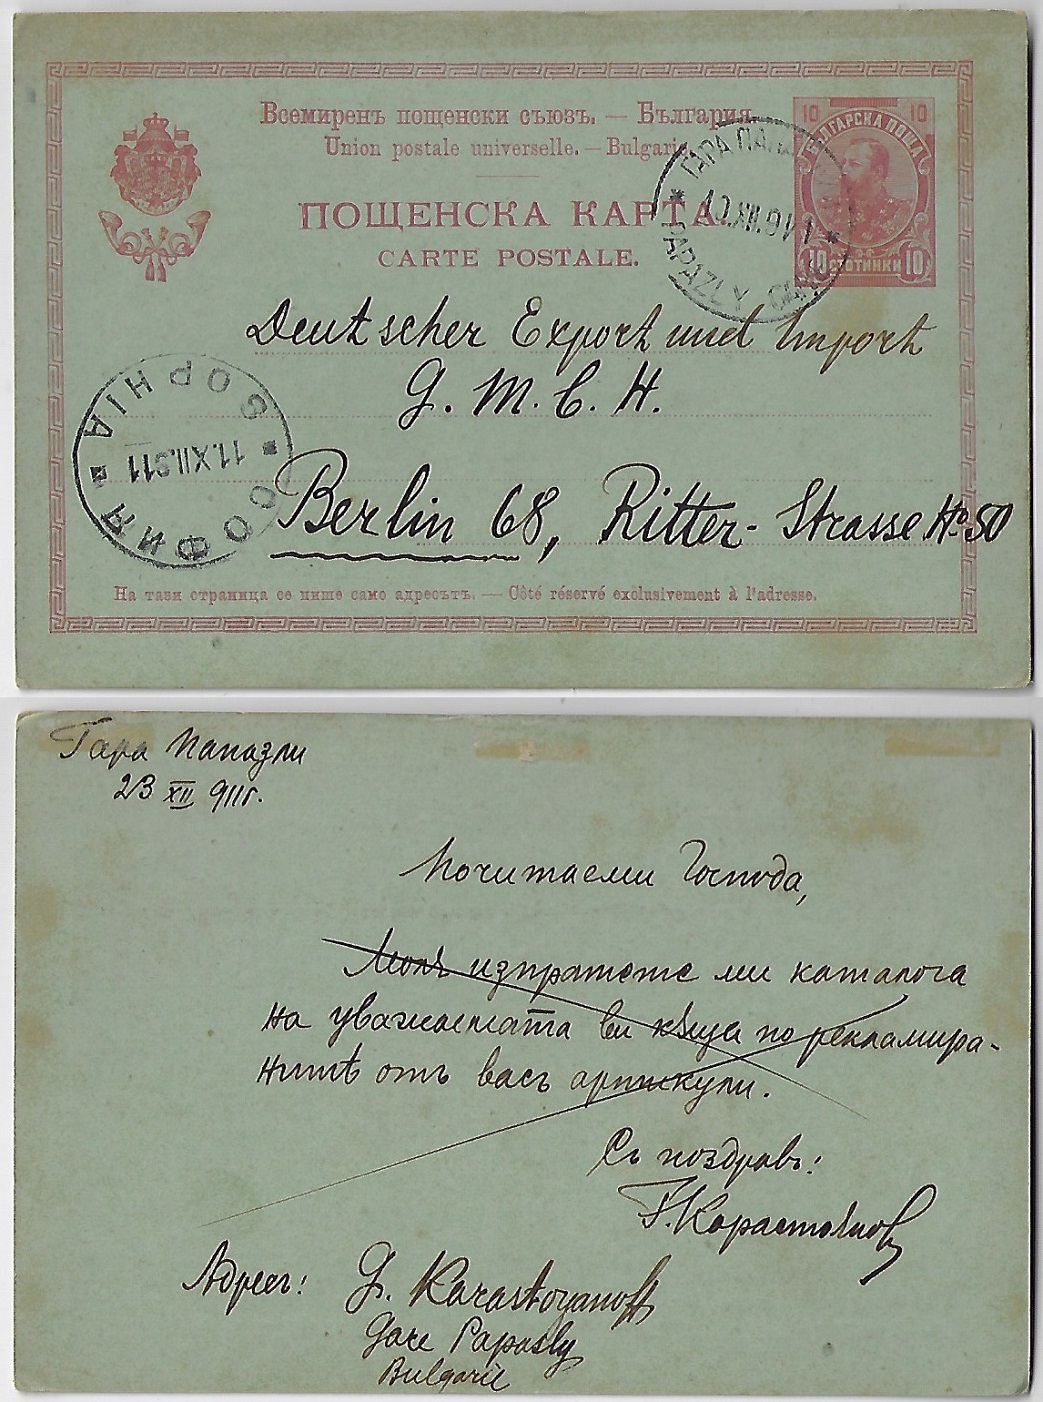 Всемиренъ пощенски съюзъ. — България.
Union postale universelle. — Bulgarie
ПОЩЕНСКА КАРТА.
CARTE POSTALE.
10 10
БЪЛГАРСКА ПОЩА
10 СТОТИНКИ 10
ГАРА ПАПА
10.XII.911
PAPAZLY GARE
Deutscher Export und Import
G. M. b. H.
Berlin 68, Ritter-Strasse No 50
SOPHIA
11.XII.911
СОФИЯ
На тази страница се пише само адресътъ. — Côté réservé exclusivement à l'adresse.
Гара Папазли
23 XII 911г.
Почитаеми Господа,
Моля изпратете ми каталога
на уважаемата ви къща по реклamира-
нитѣ отъ васъ артикули.
Съ поздравъ:
Г. Карастоянов
Адресъ: G. Karastoyanoff
Gare Papasly
Bulgarie